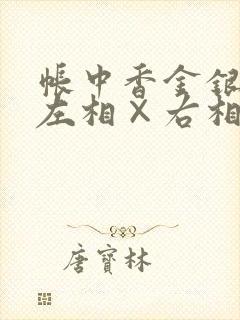 帳中香金銀
左相×右相
唐寶林